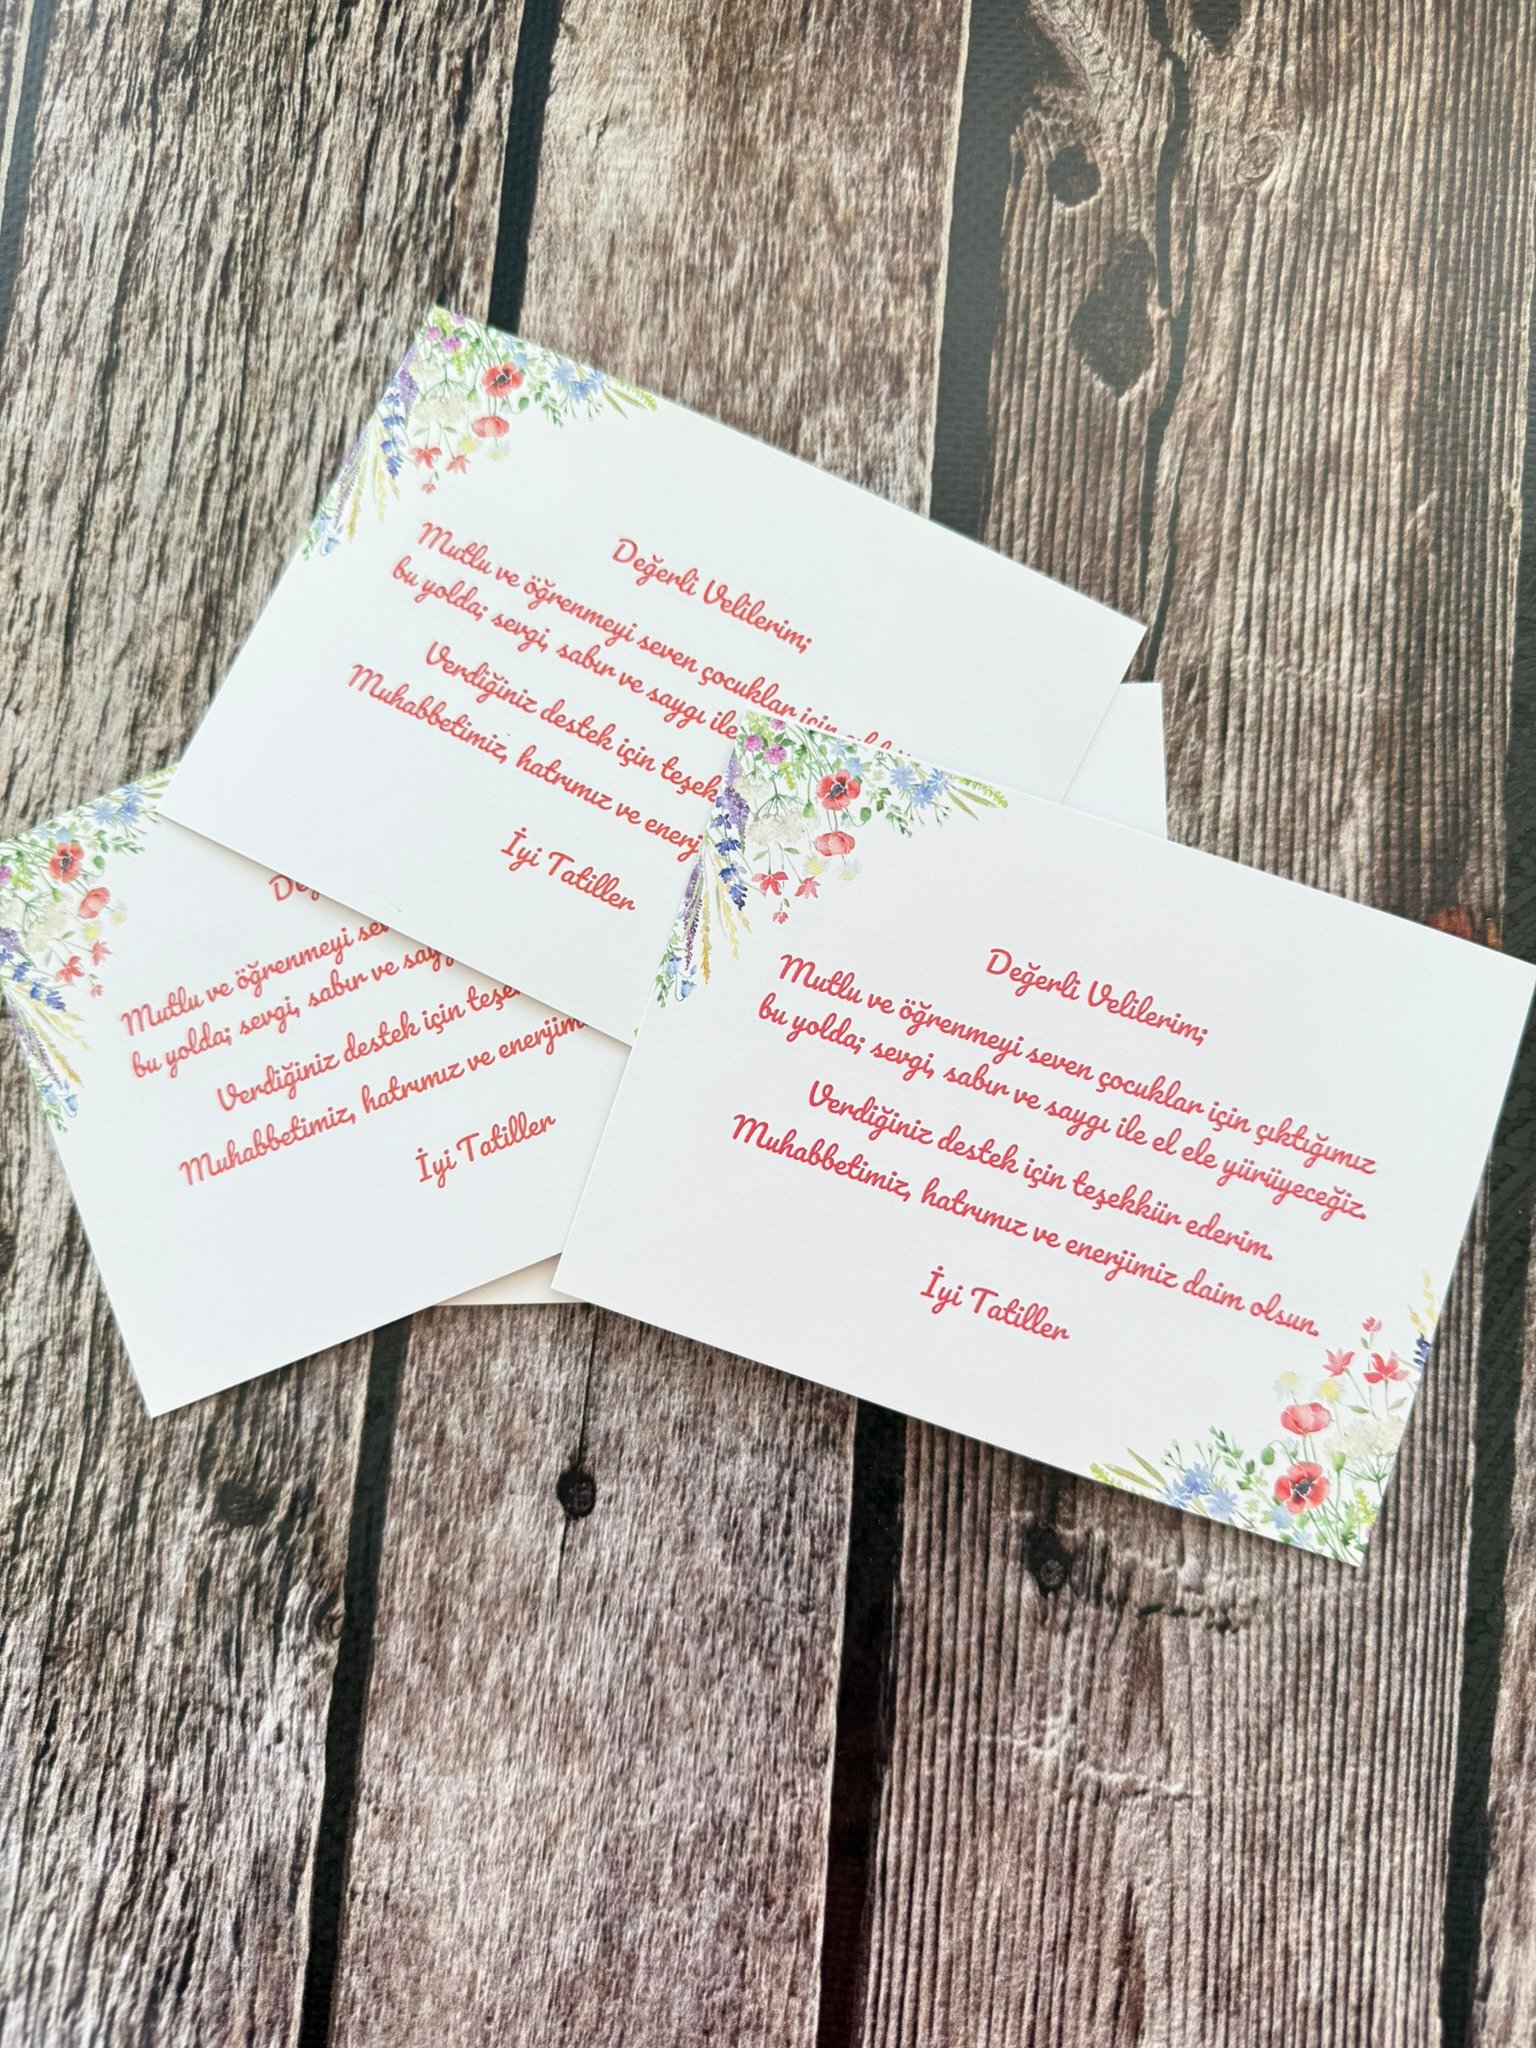 Değerli Velilerim;
Mutlu ve öğrenmeyi seven çocuklar için
bu yolda; sevgi, sabır ve saygı ile
Verdiğiniz destek için teşek
Muhabbetimiz, hatrımız ve enerj
İyi Tatiller
Değ
Mutlu ve öğrenmeyi sev
bu yolda; sevgi, sabır ve sayg
Verdiğiniz destek için teşe
Muhabbetimiz, hatrımız ve enerjim
İyi Tatiller
Değerli Velilerim;
Mutlu ve öğrenmeyi seven çocuklar için çıktığımız
bu yolda; sevgi, sabır ve saygı ile el ele yürüyeceğiz.
Verdiğiniz destek için teşekkür ederim.
Muhabbetimiz, hatrımız ve enerjimiz daim olsun.
İyi Tatiller